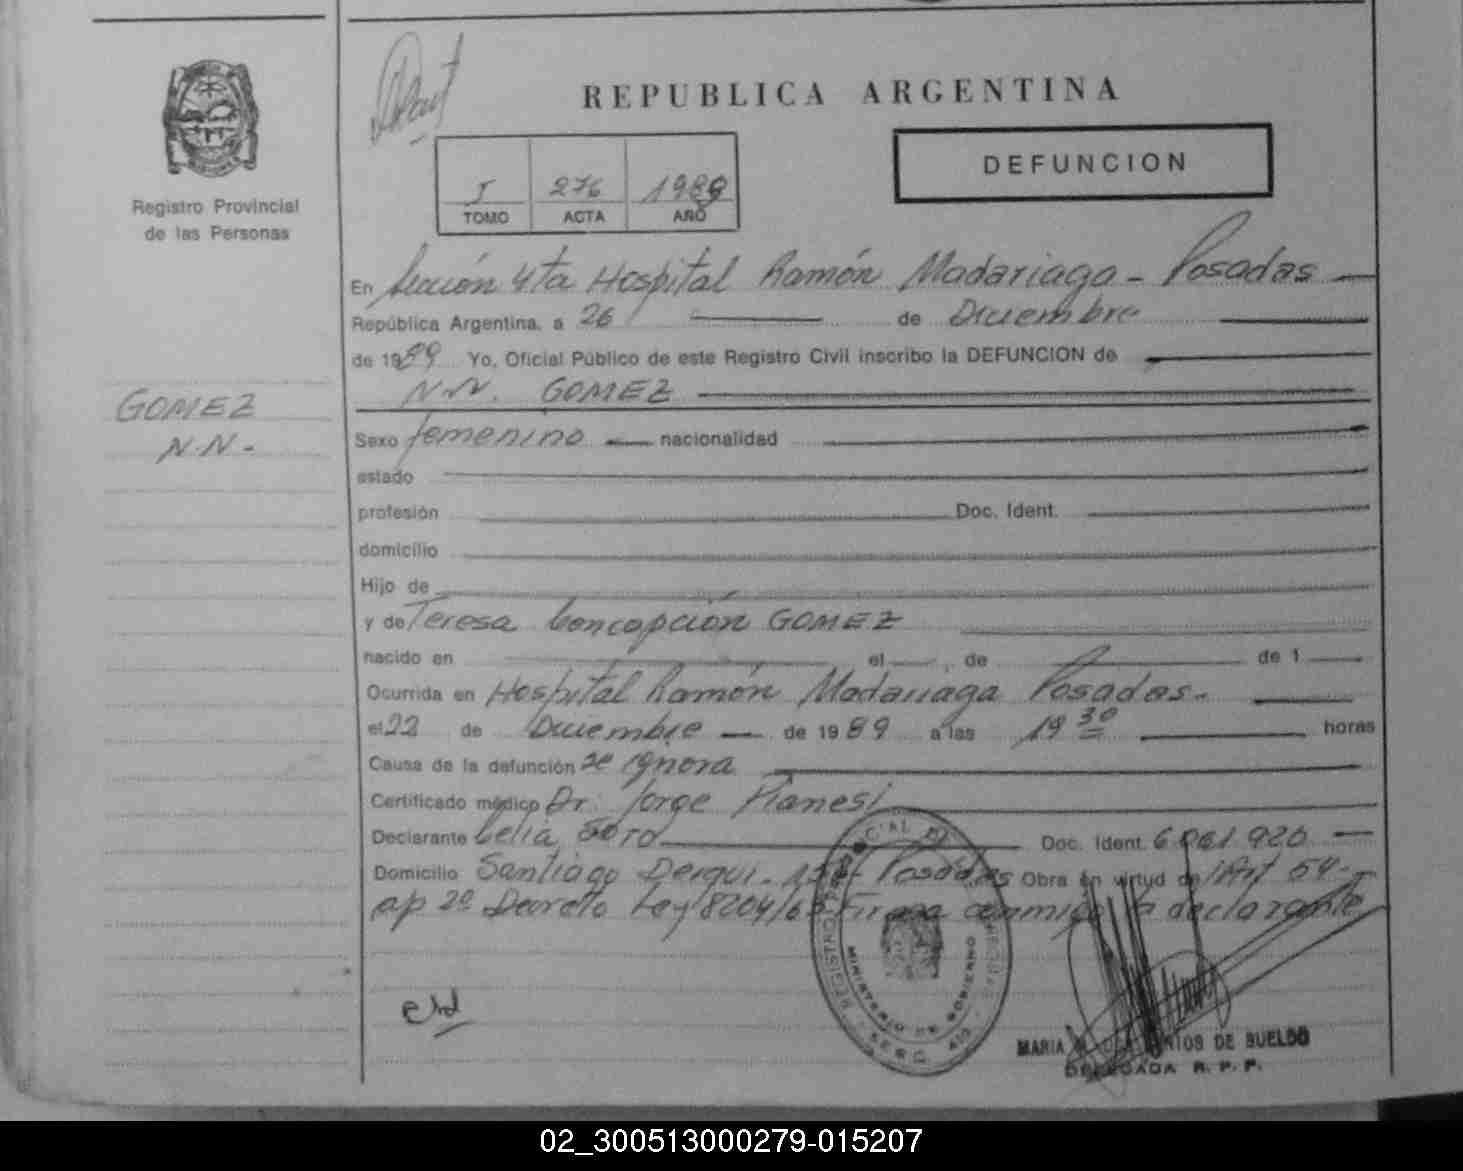 REPUBLICA ARGENTINA
DEFUNCION
I 276 1989
TOMO ACTA AÑO
Registro Provincial
de las Personas
En Sección 4ta Hospital Ramón Madariaga - Posadas
República Argentina, a 26 de Diciembre
de 1989 Yo, Oficial Público de este Registro Civil inscribo la DEFUNCION de
N.N. GOMEZ
GOMEZ
N.N.-
Sexo femenino nacionalidad
estado
profesión Doc. Ident.
domicilio
Hijo de
y de Teresa Concepción GOMEZ
nacido en el , de de 1
Ocurrida en Hospital Ramón Madariaga Posadas.
el 22 de Diciembre de 1989 a las 19 30 horas
Causa de la defunción se ignora
Certificado médico Dr. Jorge Pianesi
Declarante Celia Doc. Ident. 6061.920
Domicilio Santiago Derqui - Posadas Obra en virtud de Art 54-
ap 2º Decreto Ley 8204/63 Firma conmigo la declarante
REGISTRO PROVINCIAL DE
MINISTERIO DE GOBIERNO
MARIA DE SUELDO
DELEGADA R. P. P.
02_300513000279-015207